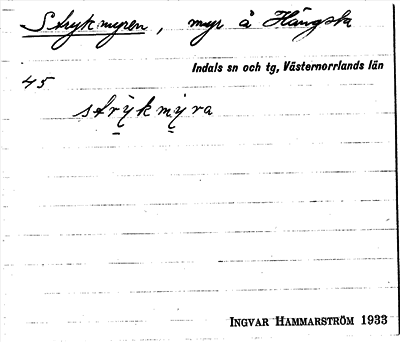 Strykmyren, myr å Hängsta
Indals sn och tg, Västernorrlands län
45
strykmyra
INGVAR HAMMARSTRÖM 1933